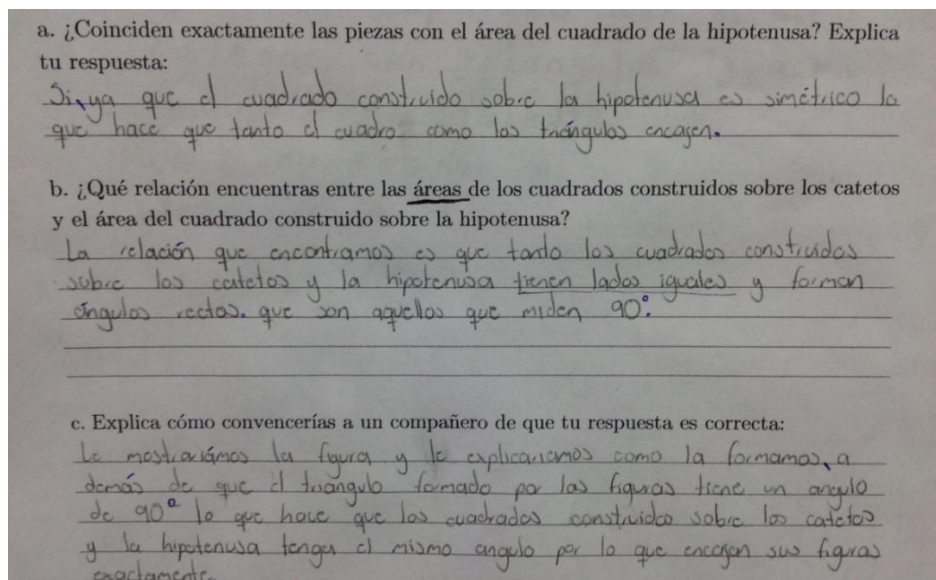 a. ¿Coinciden exactamente las piezas con el área del cuadrado de la hipotenusa? Explica
tu respuesta:
Si, ya que el cuadrado construido sobre la hipotenusa es simétrico lo
que hace que tanto el cuadro como los triángulos encajen.
b. ¿Qué relación encuentras entre las áreas de los cuadrados construidos sobre los catetos
y el área del cuadrado construido sobre la hipotenusa?
La relación que encontramos es que tanto los cuadrados construidos
sobre los catetos y la hipotenusa tienen lados iguales y forman
ángulos rectos. que son aquellos que miden 90°.
c. Explica cómo convencerías a un compañero de que tu respuesta es correcta:
Le mostrariámos la figura y le explicariamos como la formamos, a
demás de que el triángulo formado por las figuras tiene un angulo
de 90° lo que hace que los cuadrados construidos sobre los catetos
y la hipotenusa tengan el mismo angulo por lo que encajen sus figuras
exactamente.